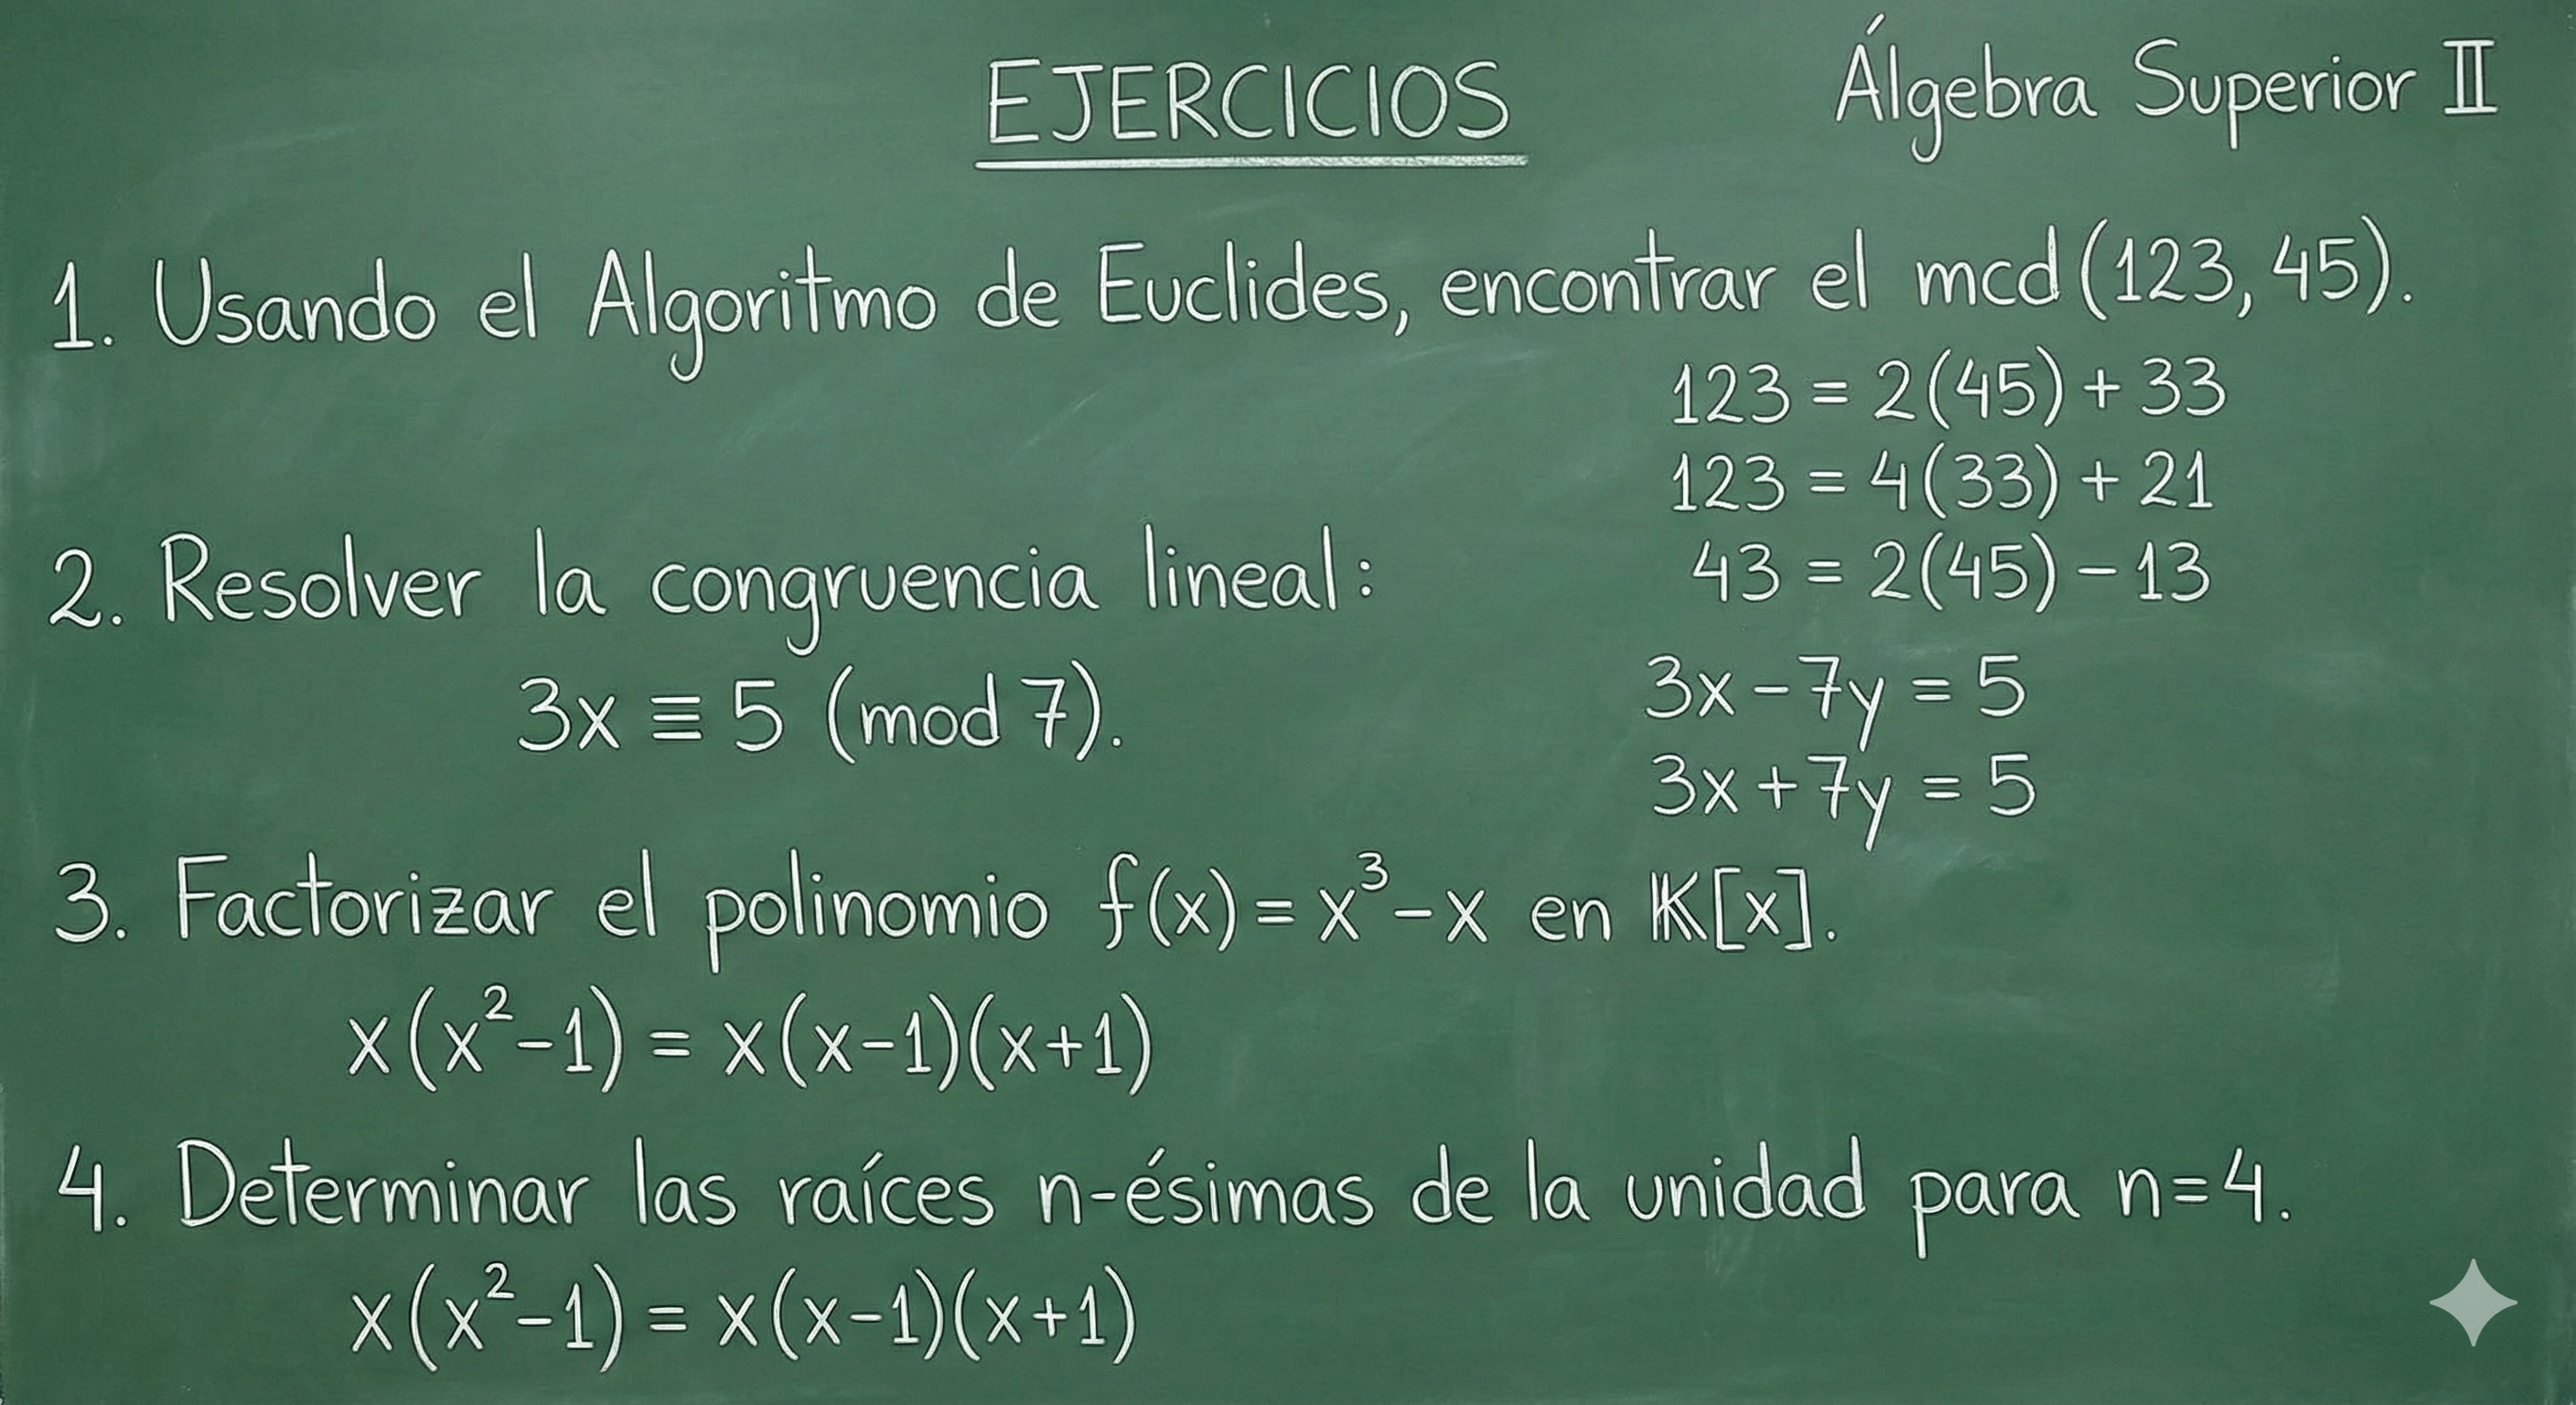 EJERCICIOS
Álgebra Superior II
1. Usando el Algoritmo de Euclides, encontrar el mcd(123, 45).
123 = 2(45) + 33
123 = 4(33) + 21
43 = 2(45) - 13
2. Resolver la congruencia lineal:
3x ≡ 5 (mod 7).
3x - 7y = 5
3x + 7y = 5
3. Factorizar el polinomio f(x) = x³ - x en 𝕂[x].
x(x² - 1) = x(x-1)(x+1)
4. Determinar las raíces n-ésimas de la unidad para n=4.
x(x² - 1) = x(x-1)(x+1)